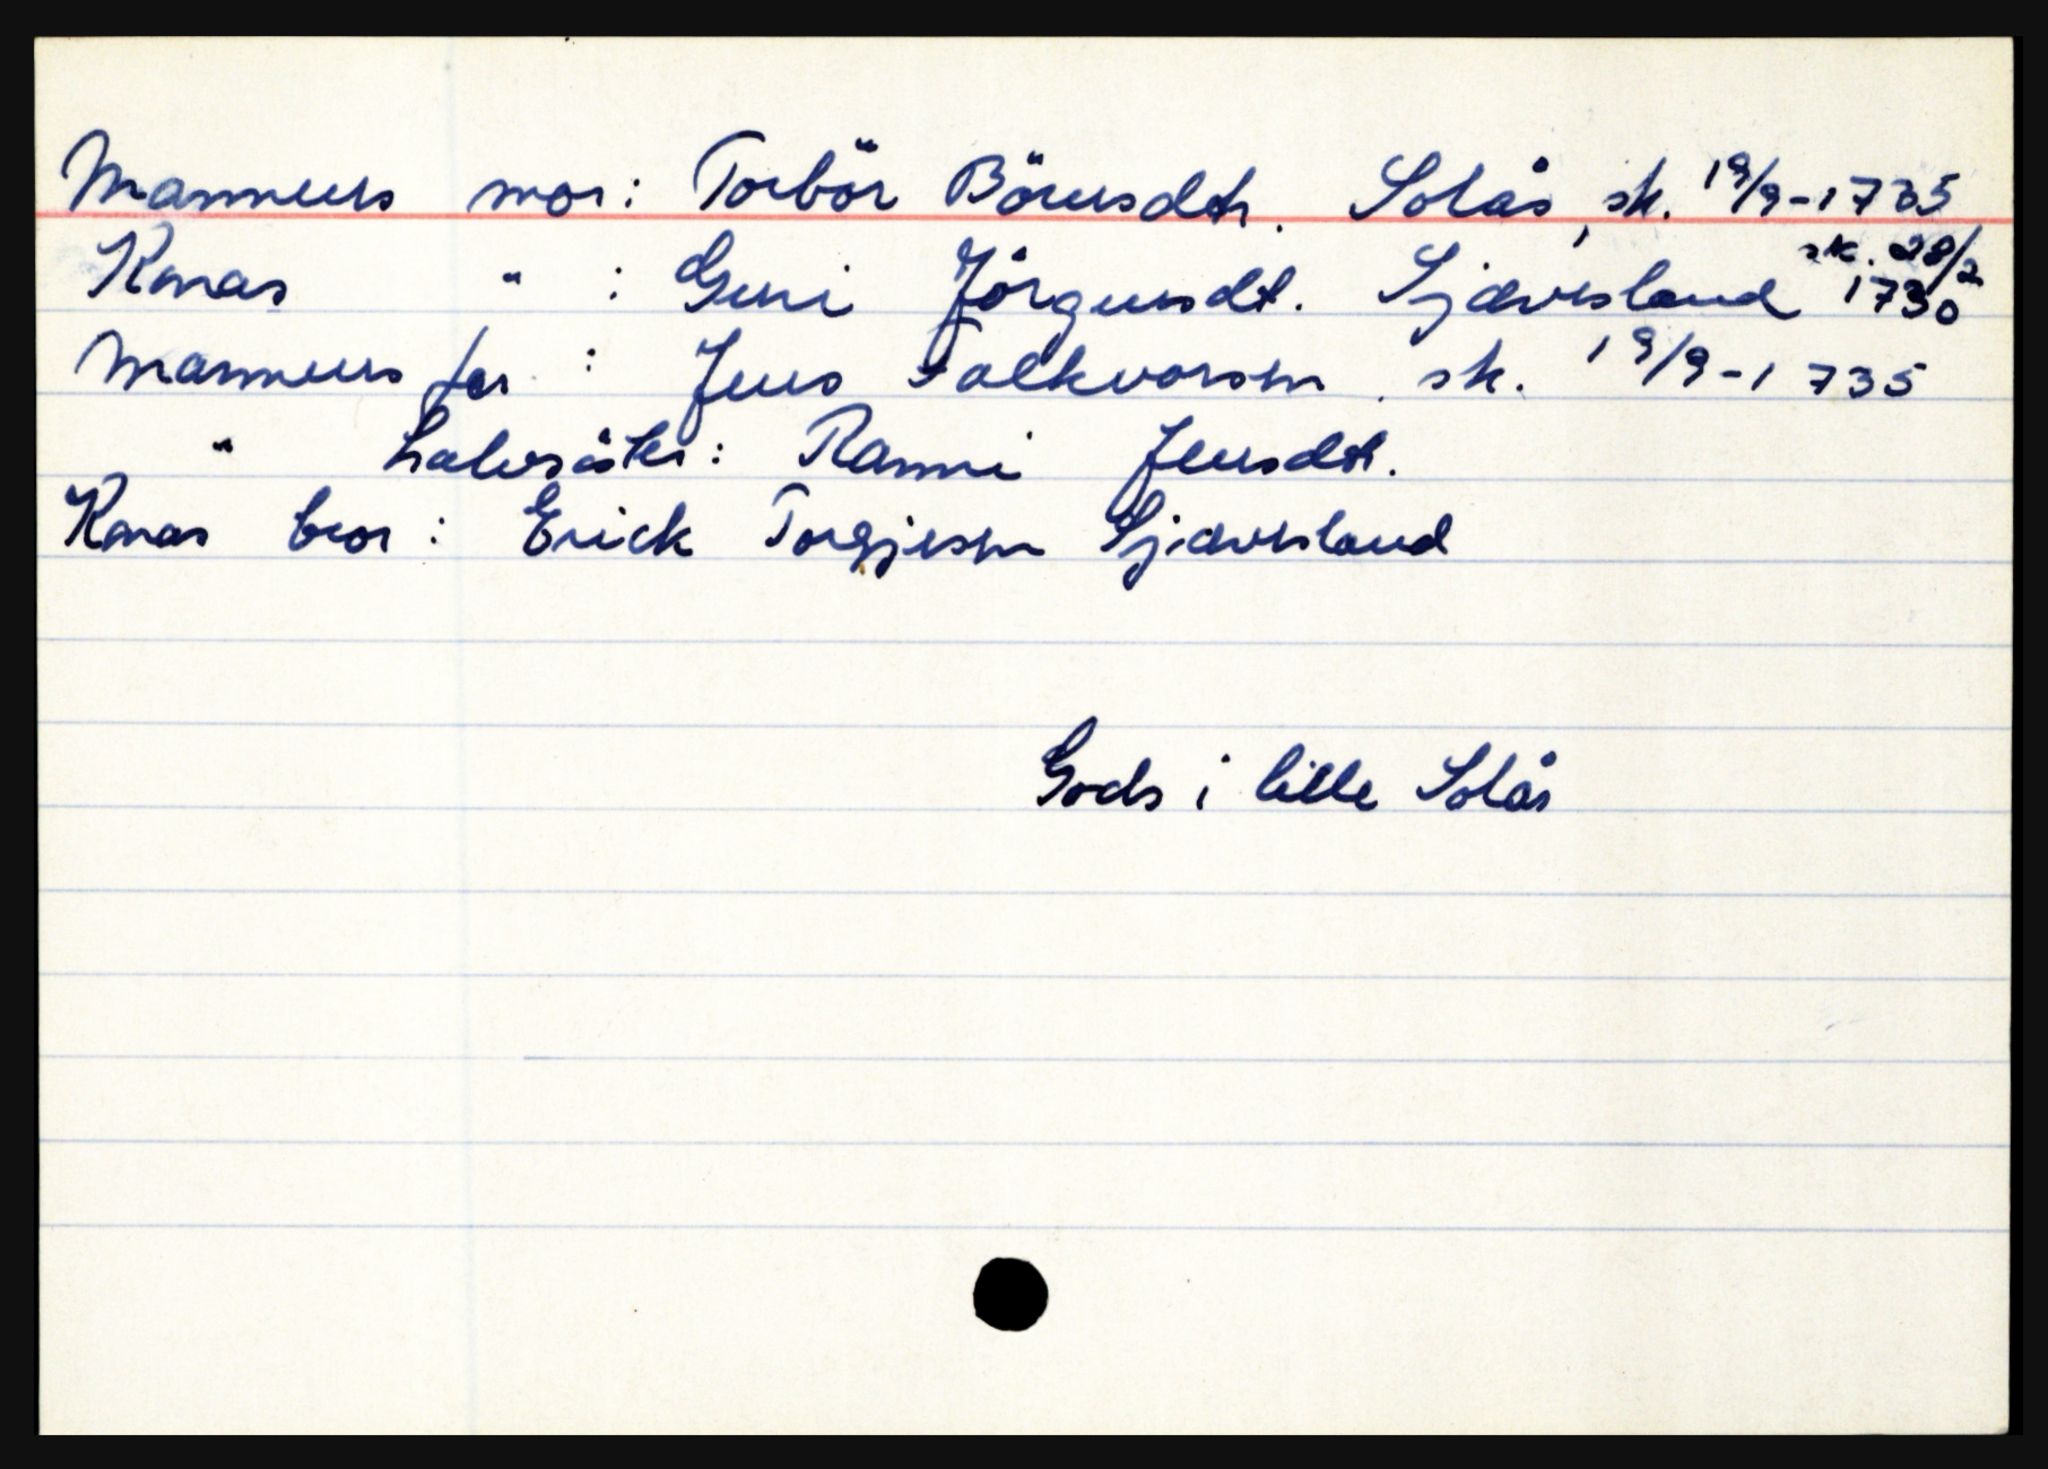 Mannens mor: Torbör Börresdtr. Solås, sk. 19/9-1735
Konas " : Guri Jörgensdt. Sjævesland sk. 28/2 1730
Mannens far : Jens Falkvorsen, sk. 19/9-1735
" halvsöster: Ranni Jensdt.
Konas bror : Erick Torgjesen Sjævesland
Gods i lille Solås